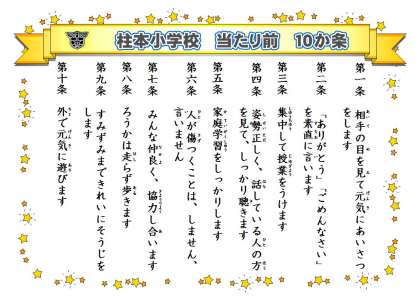 柱本小学校 当たり前 10か条
第一条 相手の目を見て元気にあいさつ
をします
第二条 「ありがとう」「ごめんなさい」
を素直に言います
第三条 集中して授業をうけます
第四条 姿勢正しく、話している人の方
を見て、しっかり聴きます
第五条 家庭学習をしっかりします
第六条 人が傷つくことは、しません、
言いません
第七条 みんな仲良く、協力し合います
第八条 ろうかは走らず歩きます
第九条 すみずみまできれいにそうじを
します
第十条 外で元気に遊びます